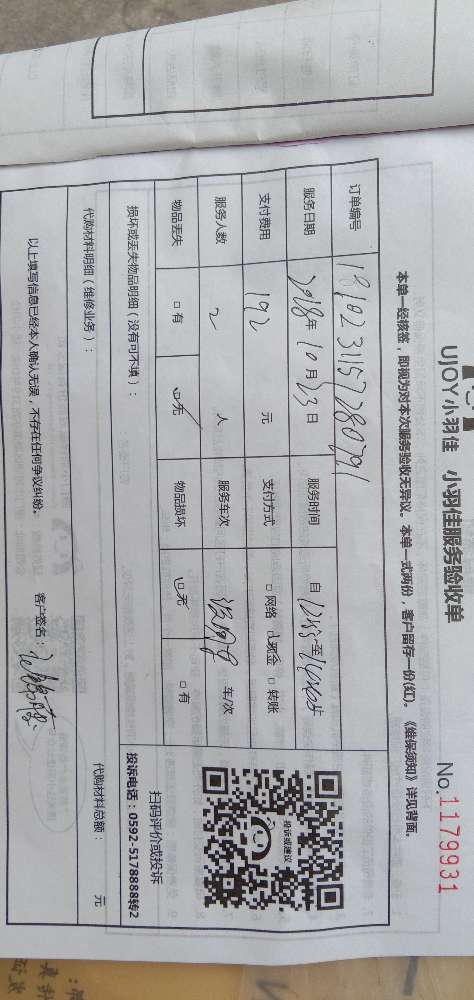 UJOY小羽佳 小羽佳服务验收单
No.1179931
本单一经核签，即视为对本次服务验收无异议。本单一式两份，客户留存一份(红)。《维保须知》详见背面。
订单编号 1810231157280791
服务日期 2018年10月23日 服务时间 自 至
支付费用 192 元 支付方式 □网络 ☑现金 □转账
服务人数 2 人 服务车次 车/次
物品丢失 □有 ☑无 物品损坏 ☑无 □有
投诉或建议
扫码评价或投诉
投诉电话：0592-5178888转2
损坏或丢失物品明细（没有可不填）：
代购材料明细（维修业务）： 代购材料总额： 元
以上填写信息已经本人确认无误，不存在任何争议纠纷。 客户签名：